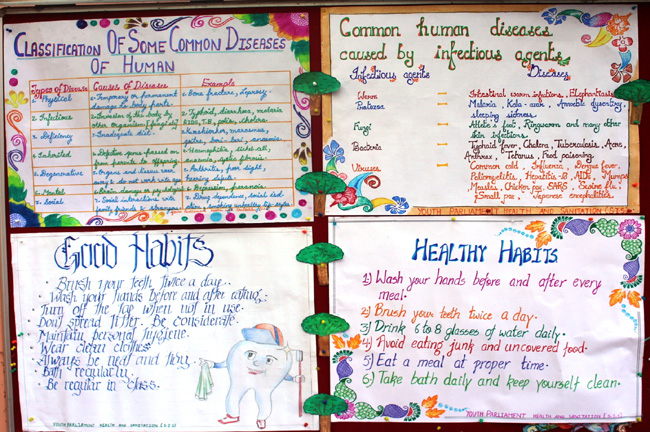 CLASSIFICATION OF SOME COMMON DISEASES
OF HUMAN
Types of Disease Causes of Disease Example
1. Physical 1. Temporary or permanent 1. Bone fracture, Leprosy.
damage to body parts.
2. Infectious 2. Invasion of the body by 2. Typhoid, diarrhoea, malaria
other Organism [fungis] AIDS, T.B, polio, cholera.
3. deficiency 3. Inadequate diet. 3. Kwashiorkor, marasmus,
goitre, beri beri, anaemia.
4. Inherited 4. Defective genes passed on 4. Haemophilia, sickel cell,
from parents to offspring anaemia, cystic fibrosis.
5. Degenerative 5. Organs and tissues wear, 5. Arthritis, poor sight,
away & do not work with age hearing defect.
6. Mental 6. Brain damage or psycological 6. Depression, paranoia.
7. Social 7. Social interactions with 7. Drug dependence, social isol
family friends & strangers ation, smoking unhealthy life-style
YOUTH PARLIAMENT HEALTH AND SANITATION
Common human diseases
caused by infectious agents.
Infectious agents Diseases
Worm - Intestinal worm infections, Elephantiasis
Protozoa - Malaria, Kala-azar, Amoebic dysentery,
sleeping sickness
Fungi - Athlete's foot, Ringworm and many other
skin infections.
Bacteria - Typhoid fever, Cholera, Tuberculosis, Acne,
Anthrax, Tetanus, Food poisoning.
Viruses - Common cold, Influenza, Dengue fever,
Poliomyelitis, Hepatitis-B, AIDS, Mumps
Measles, Chicken pox, SARS, Swine flu
Small pox, Japanese encephalitis.
YOUTH PARLIAMENT HEALTH AND SANITATION (S.I.S)
Good Habits
• Brush your teeth twice a day.
• Wash your hands before and after eating.
• Turn off the tap when not in use.
• Don't spread litter. Be considerate.
• Maintain personal hygiene.
• Wear clean clothes
• Always be neat and tidy.
• Bath regularly.
• Be regular in class.
YOUTH PARLIAMENT HEALTH AND SANITATION (S.I.S)
HEALTHY HABITS
1) Wash your hands before and after every
meal.
2) Brush your teeth twice a day.
3) Drink 6 to 8 glasses of water daily.
4) Avoid eating junk and uncovered food.
5) Eat a meal at proper time.
6) Take bath daily and keep yourself clean.
YOUTH PARLIAMENT HEALTH AND SANITATION (S.I.S)